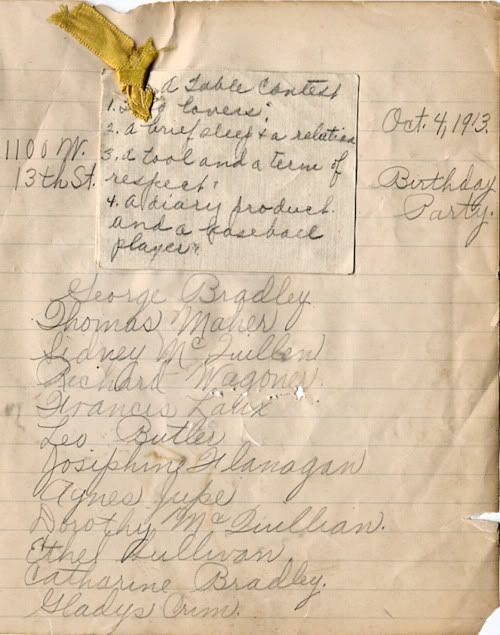 a Table Contest
1. lovers;
2. a brief sleep & a relation
3. a tool and a term of
respect;
4. a diary product
and a baseball
player.
1100 W.
13th St.
Oct. 4, 1913.
Birthday
Party.
George Bradley
Thomas Maher
Sidney McQuillen
Richard Wagoner.
Francis
Leo Butler
Josiphine Flanagan
Agnes Jupe
Dorothy McQuillian.
Ethel Sullivan
Catharine Bradley.
Gladys Crim.